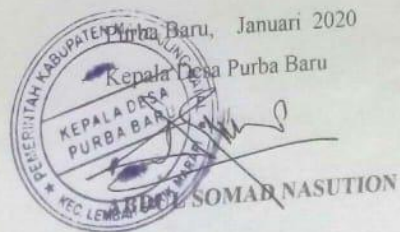 Purba Baru, Januari 2020
Kepala Desa Purba Baru
PEMERINTAH KABUPATEN
KEPALA DESA
PURBA BARU
KEC. LEMBAH
ABDUL SOMAD NASUTION